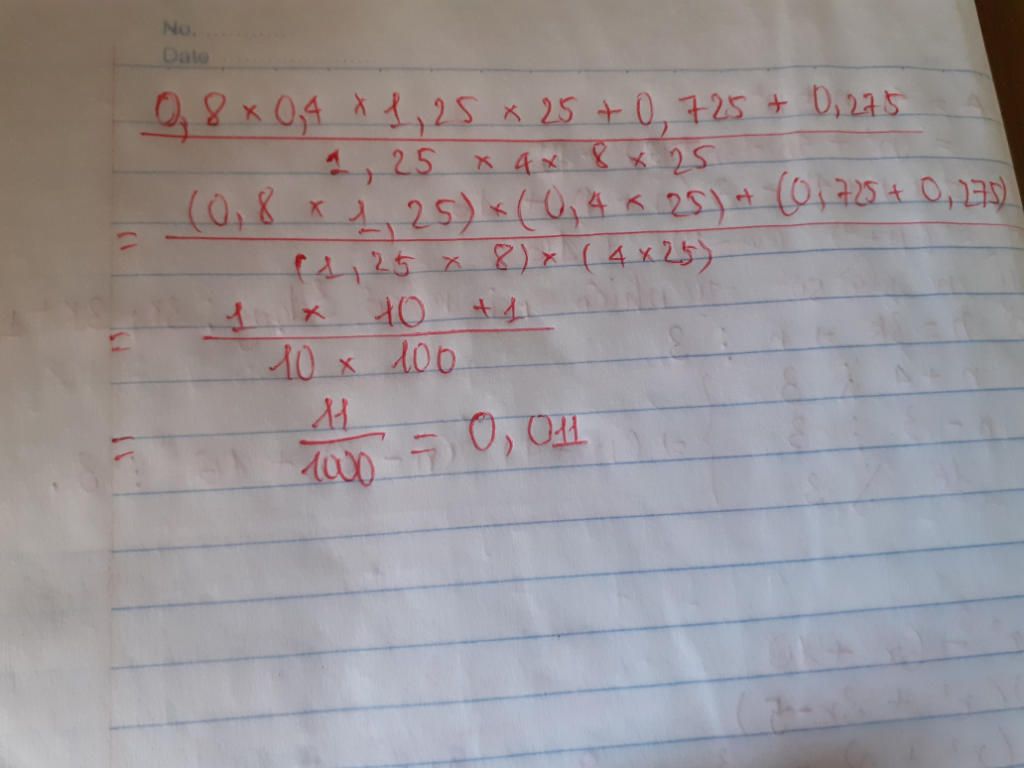 No. ............
Date ......................
0,8 × 0,4 × 1,25 × 25 + 0,725 + 0,275
1,25 × 4 × 8 × 25
= (0,8 × 1,25) × (0,4 × 25) + (0,725 + 0,275)
(1,25 × 8) × (4 × 25)
= 1 × 10 + 1
10 × 100
= 11 = 0,011
1000